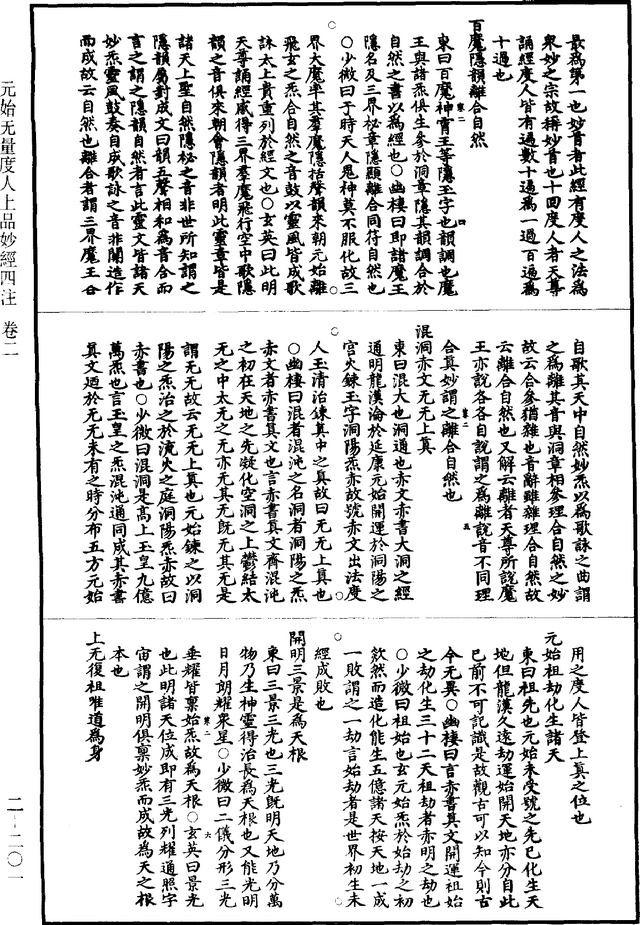 最為第一也妙首者此經有度人之法為
衆妙之宗故稱妙首也十四度人者天尊
誦經度人皆有過數十過為一過百過為
十過也
百魔隱韻離合自然
東曰百魔神霄王等隱玉字也韻調也魔
王與諸炁俱生參於洞章隱其韻調合於
自然之書以為經也○幽棲曰即諸魔王
隱名及三界秘章隱顯離合同符自然也
○少微曰于時天人鬼神莫不服化故三
界大魔率其羣魔隱括聲韻來朝元始離
飛玄之炁合自然之音鼓以靈風皆成歌
詠太上貴重列於經文也○玄英曰此明
天尊誦經感得三界羣魔飛行空中歌隱
韻之音俱來朝會隱韻者明此靈章皆是
諸天上聖自然隱秘之音非世所知謂之
隱韻屬對成文曰韻五聲相和為音合而
言之謂之隱韻自然者言此靈文皆諸天
妙炁靈風鼓奏自成歌詠之音非關造作
而成故云自然也離合者謂三界魔王合
自歌其天中自然妙炁以為歌詠之曲謂
之為離其音與洞章相參理合自然之妙
故云合參猶雜也音辭雖雜理合自然故
云離合自然也又解云離者天尊所說魔
王亦說各各自說謂之為離說音不同理
合真妙謂之離合自然也
混洞赤文无无上真
東曰混大也洞通也赤文赤書大洞之經
通明龍漢淪於延康元始開運於洞陽之
宮火鍊玉字洞陽炁赤故號赤文出法度
人玉清治鍊真中之真故曰无无上真也
○幽棲曰混者混沌之名洞者洞陽之炁
赤文者赤書真文也言赤書真文齊混沌
之初在天地之先凝化空洞之上鬱結太
无之中太无之无亦无其无既无其无是
謂无无故云无无上真也元始鍊之以洞
陽之炁治之於流火之庭洞陽炁赤故曰
赤書也○少微曰混洞是高上玉皇九億
萬炁也言玉皇之炁混沌通同成其赤書
真文迺於无无未有之時分布五方元始
用之度人皆登上真之位也
元始祖劫化生諸天
東曰祖先也元始未受號之先已化生天
地但龍漢久遠劫運始開天地亦分自此
已前不可記識是故觀古可以知今則古
今无異○幽棲曰言赤書真文開運祖始
之劫化生三十二天祖劫者赤明之劫也
○少微曰祖始也玄元始炁於始劫之初
欻然而造化能生五億諸天按天地一成
一敗謂之一劫言始劫者是世界初生未
經成敗也
開明三景是為天根
東曰三景三光也三光既明天地乃分萬
物乃生神靈得治長為天根也又能光明
日月朗耀衆星○少微曰二儀分形三光
垂耀皆稟始炁故為天根○玄英曰景光
也此明諸天位成即有三光列耀通照宇
宙謂之開明俱稟妙炁而成故為天之根
本也
上无復祖唯道為身
元始无量度人上品妙經四注 卷二
二-二〇一